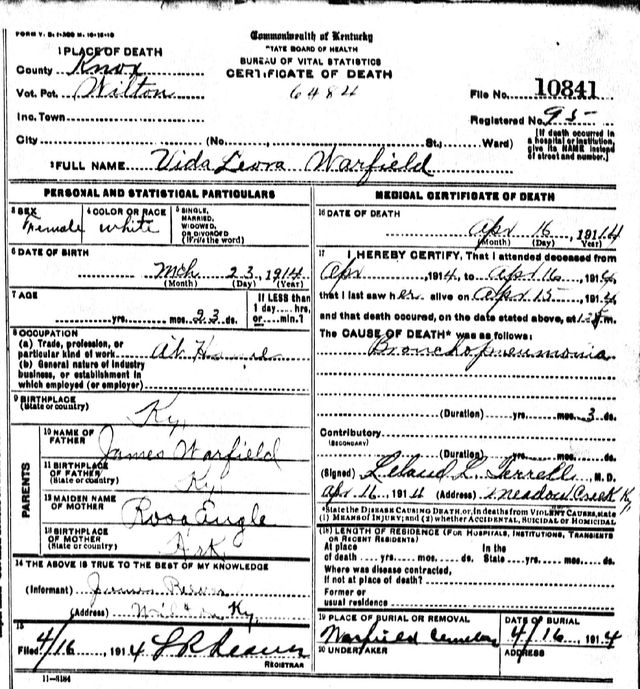 FORM V. S. 1-300 M. 10-18-10
Commonwealth of Kentucky
STATE BOARD OF HEALTH
BUREAU OF VITAL STATISTICS
CERTIFICATE OF DEATH
1 PLACE OF DEATH
County Knox
Vot. Pct. Wilton
6484
File No. 10841
Inc. Town
Registered No. 95
City (No., St.; Ward)
[If death occurred in a hospital or institution, give its NAME instead of street and number.]
2 FULL NAME Vida Leora Warfield
PERSONAL AND STATISTICAL PARTICULARS
3 SEX Female
4 COLOR OR RACE white
5 SINGLE, MARRIED, WIDOWED, OR DIVORCED (Write the word)
6 DATE OF BIRTH
Mch 23, 1914
(Month) (Day) (Year)
7 AGE
yrs. mos. 23 ds.
If LESS than 1 day hrs. or min.?
8 OCCUPATION
(a) Trade, profession, or particular kind of work At Home
(b) General nature of industry business, or establishment in which employed (or employer)
9 BIRTHPLACE (State or country) Ky.
PARENTS
10 NAME OF FATHER James Warfield
11 BIRTHPLACE OF FATHER (State or country) Ky
12 MAIDEN NAME OF MOTHER Rosa Engle
13 BIRTHPLACE OF MOTHER (State or country) Ark
14 THE ABOVE IS TRUE TO THE BEST OF MY KNOWLEDGE
(Informant) James
(Address) Wilton Ky,
15
Filed 4/16, 1914
REGISTRAR
11-3184
MEDICAL CERTIFICATE OF DEATH
16 DATE OF DEATH
Apr 16, 1914
(Month) (Day) (Year)
17 I HEREBY CERTIFY, That I attended deceased from
Apr, 1914, to Apr 16, 1914,
that I last saw her alive on Apr 15, 1914,
and that death occured, on the date stated above, at m.
The CAUSE OF DEATH* was as follows:
Bronchopneumonia
(Duration) yrs. mos. 3 ds.
Contributory
(SECONDARY)
(Duration) yrs. mos. ds.
(Signed) Leland L. Terrell, M. D.
Apr 16, 1914 (Address) Meadow Creek Ky,
*State the DISEASE CAUSING DEATH, or, in deaths from VIOLENT CAUSES, state
(1) MEANS OF INJURY; and (2) whether ACCIDENTAL, SUICIDAL OR HOMICIDAL
(18) LENGTH OF RESIDENCE (FOR HOSPITALS, INSTITUTIONS, TRANSIENTS OR RECENT RESIDENTS)
At place of death yrs. mos. ds. In the State yrs. mos. ds.
Where was disease contracted,
if not at place of death?
Former or
usual residence
19 PLACE OF BURIAL OR REMOVAL
Warfield Cemetery
DATE OF BURIAL
4/16, 1914
20 UNDERTAKER
ADDRESS